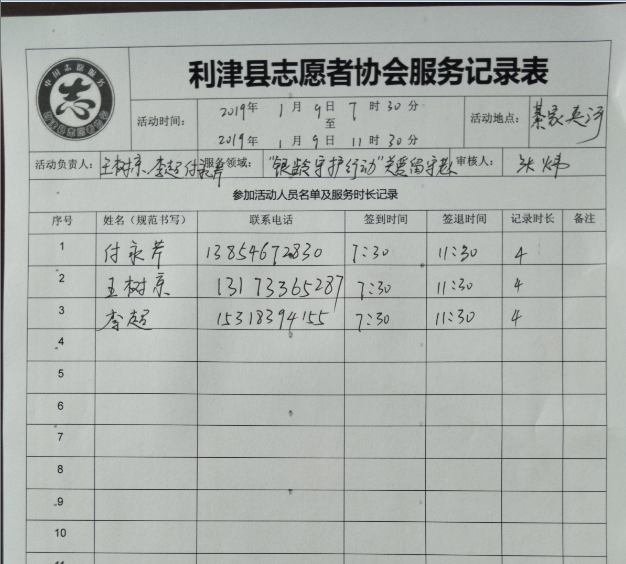 中国志愿服务
志
利津县志愿者协会服务记录表
活动时间： 2019年 1月 9日 7时 30分
至
2019年 1月 9日 11时 30分
活动地点：
活动负责人： 王树京 李超 付永芹 服务领域： "银龄守护行动"关爱留守老人 审核人： 张炜
参加活动人员名单及服务时长记录
序号 姓名（规范书写） 联系电话 签到时间 签退时间 记录时长 备注
1 付永芹 13854672830 7:30 11:30 4
2 王树京 13173365287 7:30 11:30 4
3 李超 15318394155 7:30 11:30 4
4
5
6
7
8
9
10
11